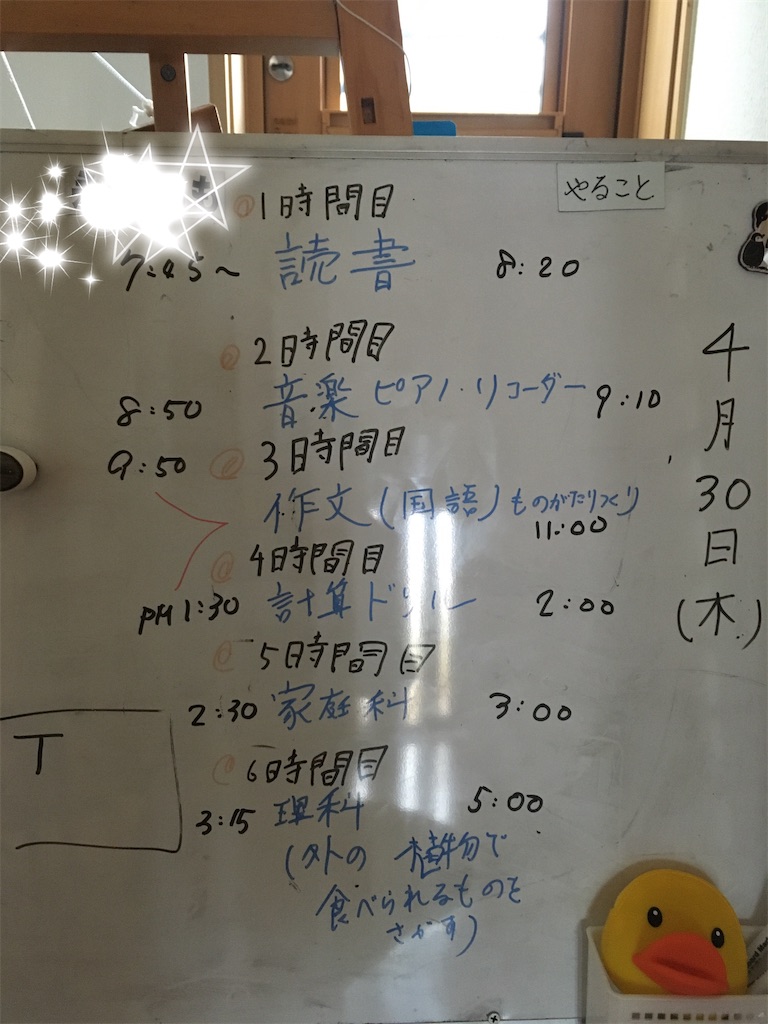 やること
4月30日(木)
@1時間目
7:45~ 読書 8:20
@2時間目
8:50 音楽 ピアノ・リコーダー 9:10
9:50 @3時間目
作文(国語)ものがたりつくり
11:00
@4時間目
PM 1:30 計算ドリル 2:00
@5時間目
2:30 家庭科 3:00
@6時間目
3:15 理科 5:00
(外の植物で
食べられるものを
さがす)
T